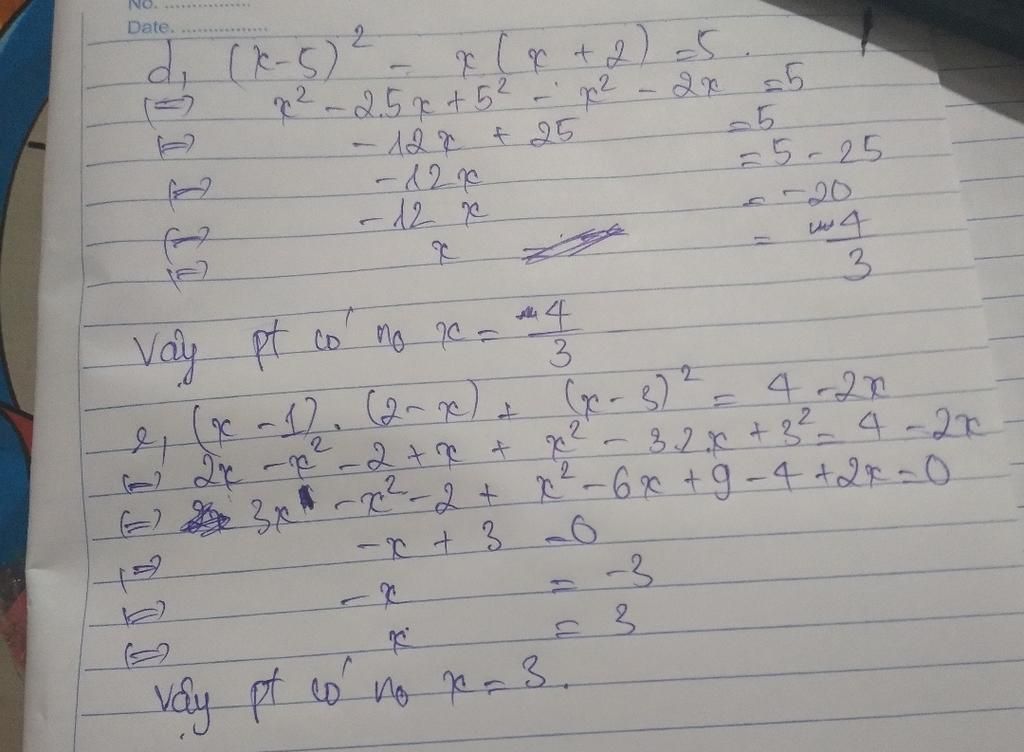 No. ................
Date. ................
d, (x-5)² - x(x+2) = 5.
⇔ x² - 2.5x + 5² - x² - 2x = 5
⇔ -12x + 25 = 5
⇔ -12x = 5 - 25
⇔ -12x = -20
⇔ x = 4/3
Vậy pt có no x = 4/3
e, (x-1).(2-x) + (x-3)² = 4 - 2x
⇔ 2x - x² - 2 + x + x² - 3.2.x + 3² = 4 - 2x
⇔ 3x - x² - 2 + x² - 6x + 9 - 4 + 2x = 0
⇔ -x + 3 = 0
⇔ -x = -3
⇔ x = 3
Vậy pt có no x = 3.